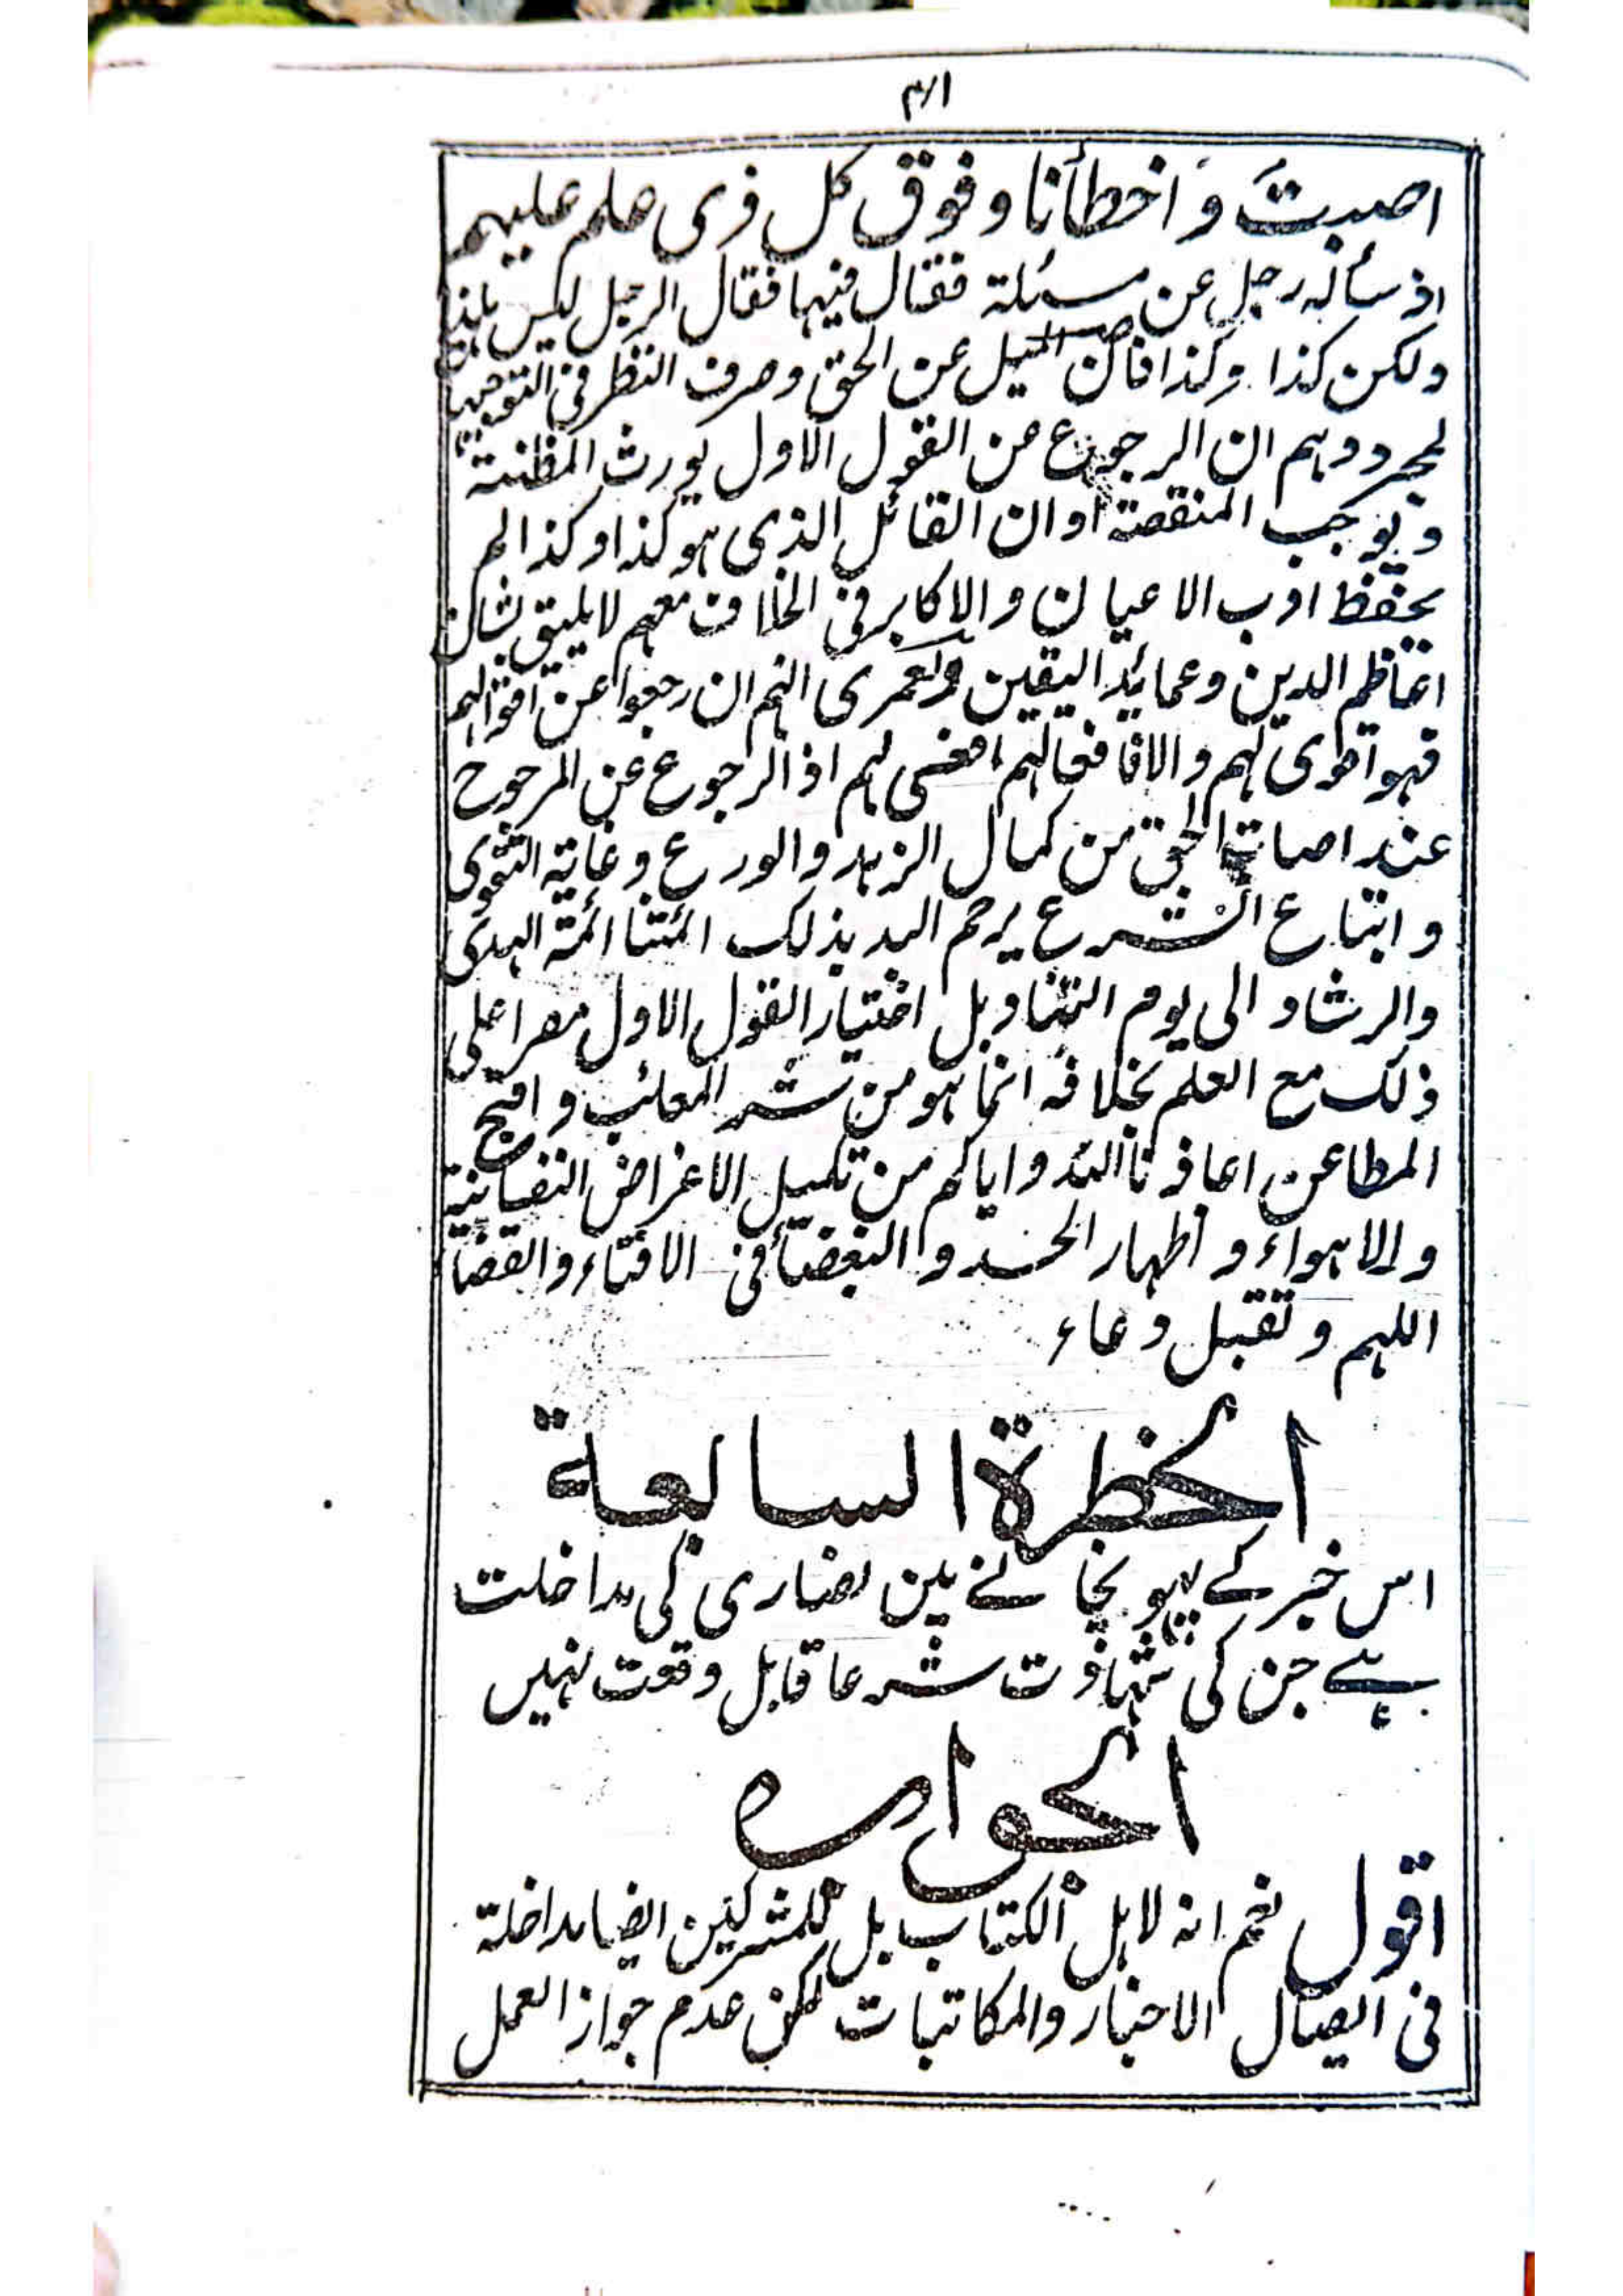 اصبتَ وَ اخطأنا وفوق كل ذى علم عليم
اذ سأله رجل عن مسئلة فقال فيها فقال الرجل ليس هكذا
ولكن كذا وكذا فان الميل عن الحق وصرف النظر فى
لمجرد وہم ان الرجوع عن القول الاول يورث المظنة
ويوجب المنقصة او ان القائل الذى ہو كذا وكذا لم
يحفظ ادب الاعيان والاكابر فى الخلاف معہم لايليق بشان
اعاظم الدين وعمايد اليقين ولعمرى انہم ان رجعوا عن اقوالہم
فہو اقوى لہم والا فافعالہم لہم اذ الرجوع عن المرجوح
عند الحق من كمال الزہد والورع وغاية التقوى
واتباع الشرع يرحم اللہ بذلك ائمتنا ائمة الہدى
والرشاد الى يوم التناد بل اختيار القول الاول مصرا على
ذلك مع العلم بخلافہ انما ہو من شر المعائب واقبح
المطاعن اعاذنا اللہ واياكم من تكميل الاغراض النفسانية
والاہواء و اظہار الحسد و البغضاء فى الافتاء والقضاء
اللہم وتقبل دعاء
الخطرة السابعة
اس خبر کے پہونچانے مین نصاری کی مداخلت
ہے جن کی شہادت شرعا قابل وقعت نہیں
الجوارہ
اقول نعم انہ لاہل الكتاب بل للمشركين ايضا مداخلة
فى ايصال الاخبار والمكاتبات لكن عدم جواز العمل